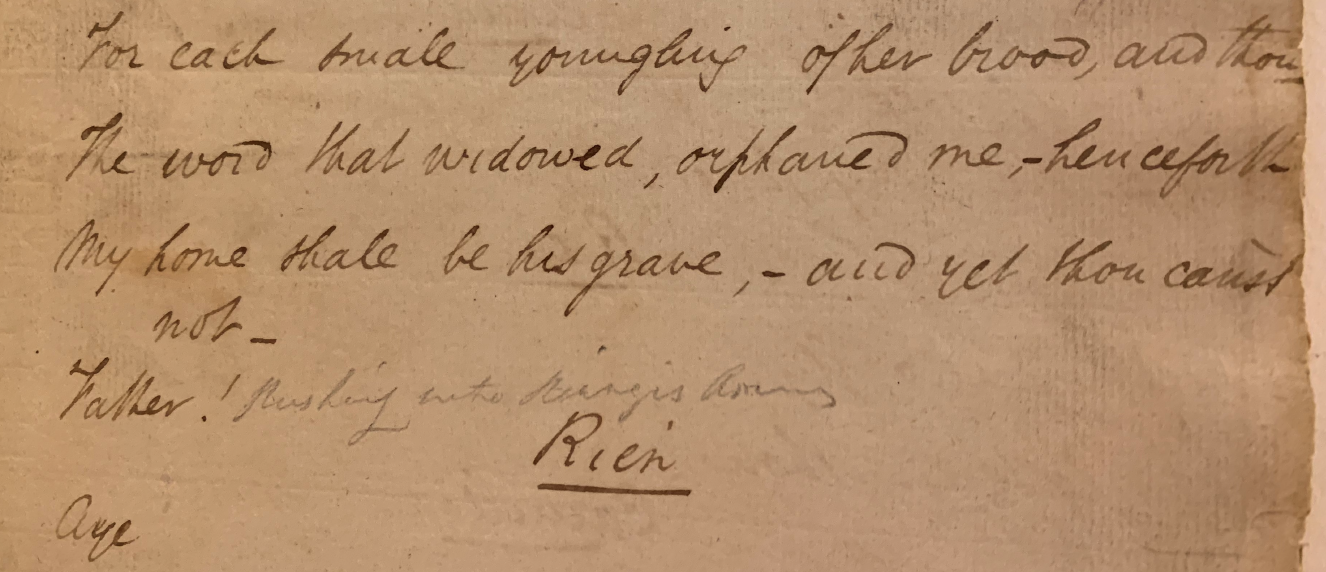 For each small youngling of her brood, and thou
The word that widowed, orphaned me,-henceforth
My home shall be his grave,- and yet thou canst
not-
Father! Rushing into Rienzis Arms
Rien
Aye